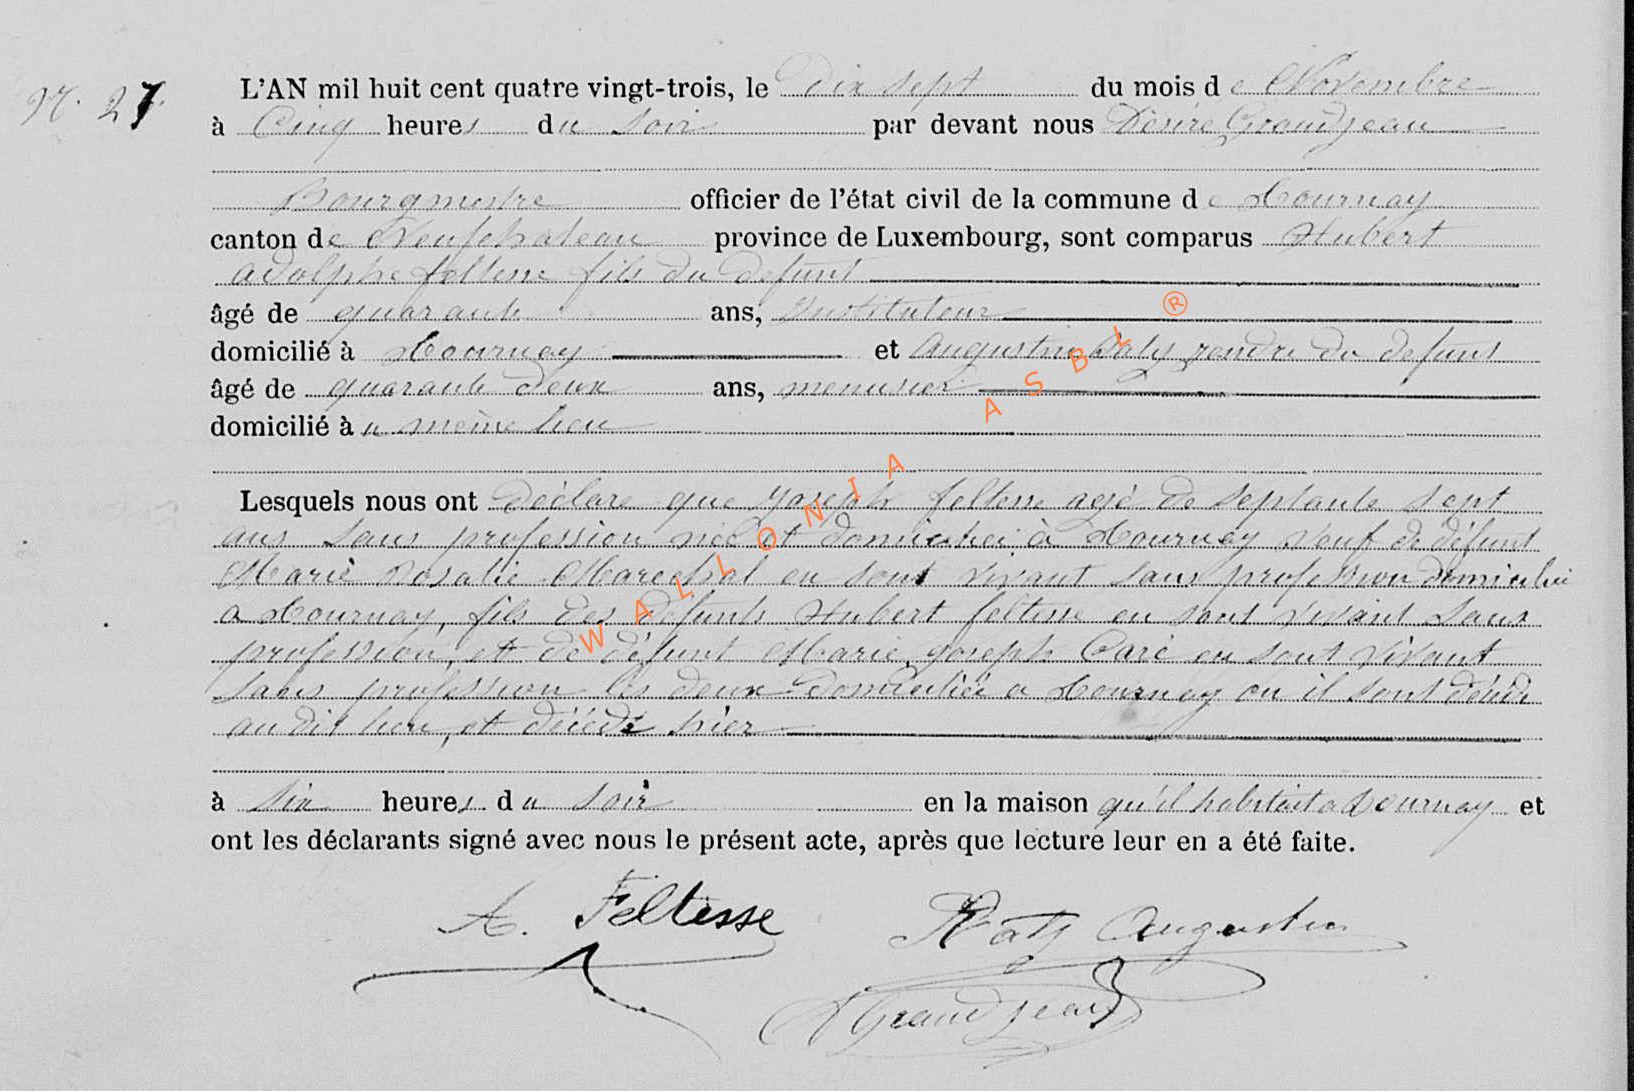 N. 27.
L'AN mil huit cent quatre vingt-trois, le dix sept du mois de Novembre
à Cinq heures du soir par devant nous Désiré Grandjean
Bourgmestre officier de l'état civil de la commune de Tournay
canton de Neufchateau province de Luxembourg, sont comparus Hubert
adolphe feltesse fils du defunt
âgé de quarante ans, Instituteur
domicilié à Tournay et Augustin Raty gendre du defunt
âgé de quarante deux ans, menusier
domicilié au même lieu
Lesquels nous ont déclaré que Joseph feltesse agé de septante sept
ans sans profession né et domicilié à Tournay veuf de défunt
Marie Rosalie Marechal en sont vivant sans profession domicilié
a Tournay, fils des défunts Hubert feltesse en sont vivant sans
profession, et de défunt Marie joseph Caré en sont vivant
sans profession les deux domiciliés a Tournay ou il sont décédé
au dit lieu, et décédé hier
à six heures du soir en la maison qu'il habitait a Tournay et
ont les déclarants signé avec nous le présent acte, après que lecture leur en a été faite.
A. Feltesse Raty Augustin
D Grandjean
WALLONIA ASBL ®